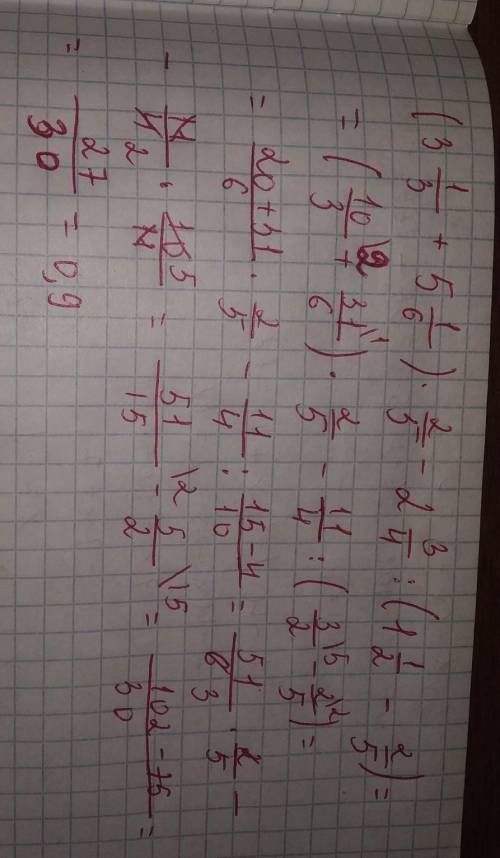 (3 1/3 + 5 1/6) · 2/5 - 2 3/4 : (1 1/2 - 2/5) =
= (10/3 \2 + 31/6 \1) · 2/5 - 11/4 : (3/2 \5 - 2/5 \2) =
= 20+31/6 · 2/5 - 11/4 : 15-4/10 = 51/6 3 · 2/5 -
- 11/4 2 · 10 5/11 = 51/15 \2 - 5/2 \15 = 102-75/30 =
= 27/30 = 0,9